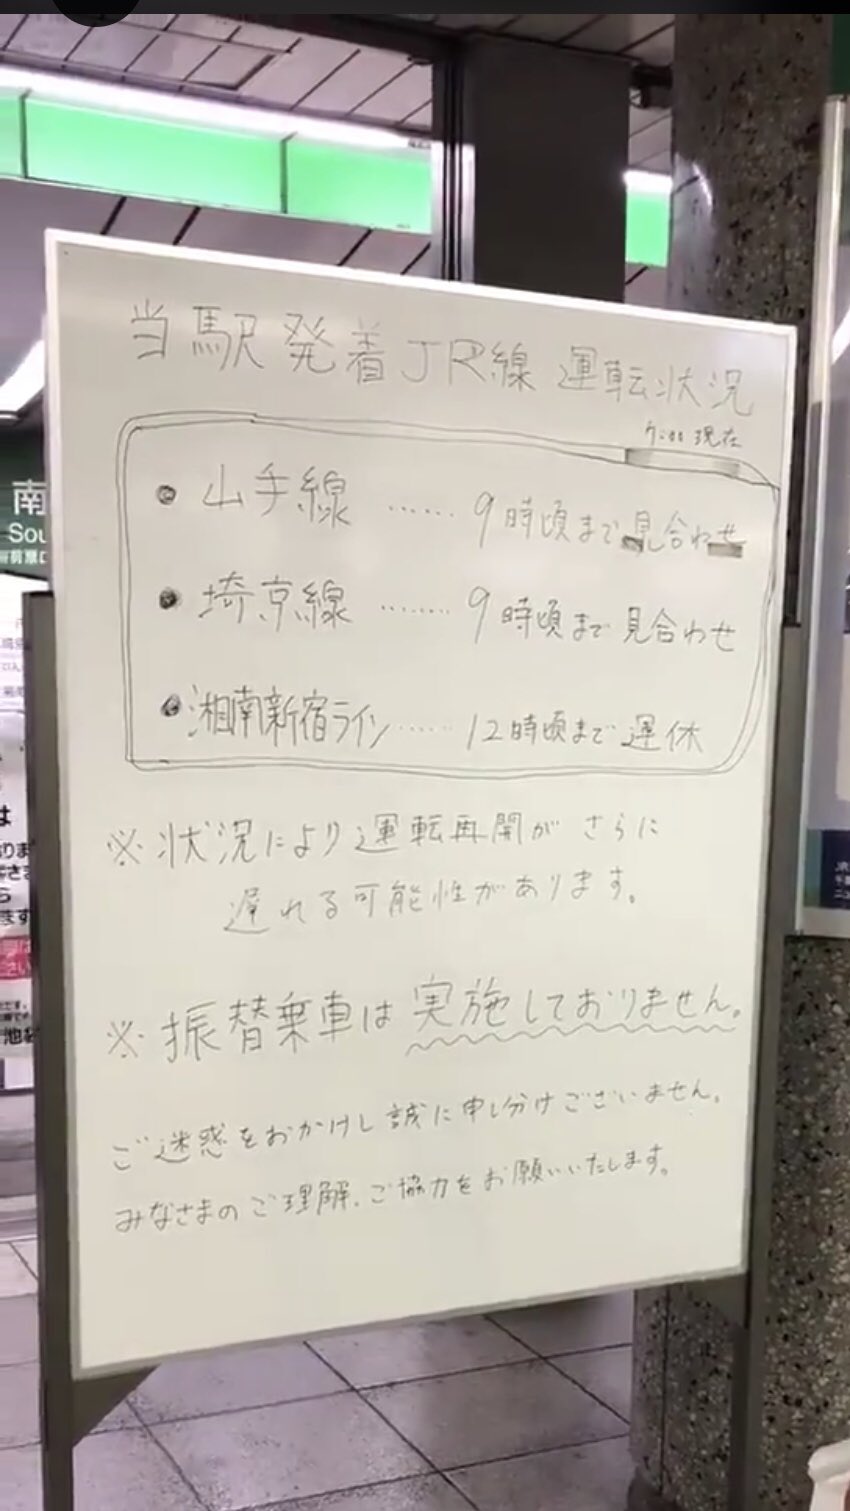 当駅発着JR線 運転状況
現在
● 山手線 …… 9時頃まで見合わせ
● 埼京線 …… 9時頃まで見合わせ
● 湘南新宿ライン…… 12時頃まで運休
※状況により運転再開がさらに
遅れる可能性があります。
※振替乗車は実施しておりません。
ご迷惑をおかけし誠に申し分けございません。
みなさまのご理解、ご協力をお願いいたします。
南
Sou